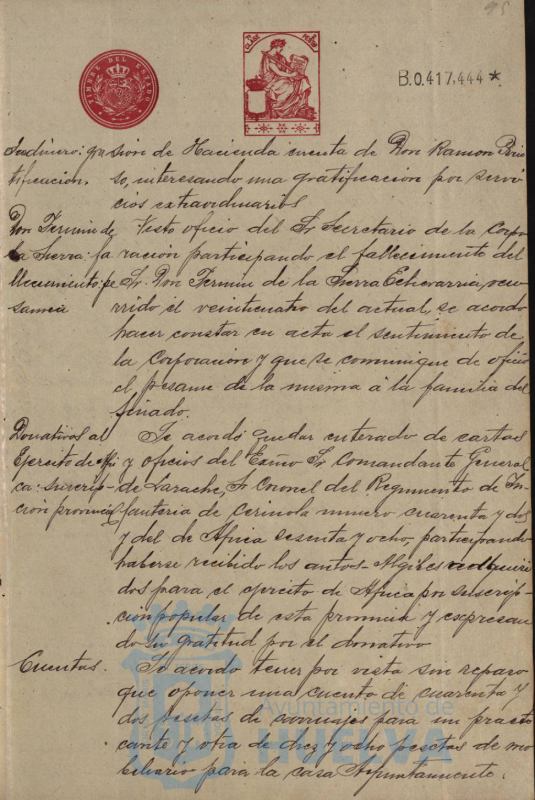 95
TIMBRE DEL ESTADO
B.0.417.444*
sion de Hacienda cuenta de Don Ramon
so, interesando una gratificacion por servi
cios extraordinarios
tificacion.
Don Fermin de
la Sierra: fa
llecimiento, pe
Visto oficio del Sr Secretario de la Corpo
racion participando el fallecimiento del
Sr. Don Fermin de la Sierra Echevarria, ocu
rrido el veinticuatro del actual, se acordo
hacer constar en acta el sentimiento de
la Corporacion y que se comunique de oficio
el pesame de la misma á la familia del
finado.
Donativos al
Ejercito de Afri
ca: suscrip-
cion provincial
Se acordó quedar enterado de cartas
y oficios del Exmo Sr Comandante General
de Larache, Sr Coronel del Regimiento de In
fanteria de Cerinola numero cuarenta y dos
y del de Africa sesenta y ocho, participando
haberse recibido los autos-Algibes adquiri
dos para el ejercito de Africa por suscrip-
cion popular de esta provincia y expresan
do su gratitud por el donativo
Cuentas.
Se acordo tener por vista sin reparo
que oponer una cuenta de cuarenta y
dos pesetas de carruajes para un practi
cante y otra de diez y ocho pesetas de mo
biliario para la casa Ayuntamiento.
Ayuntamiento de
HUELVA